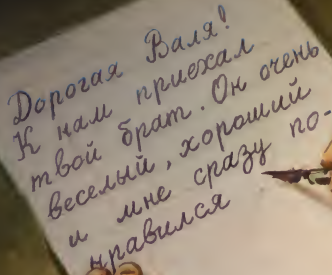 Дорогая Валя!
К нам приехал
твой брат. Он очень
веселый, хороший
и мне сразу по-
нравился